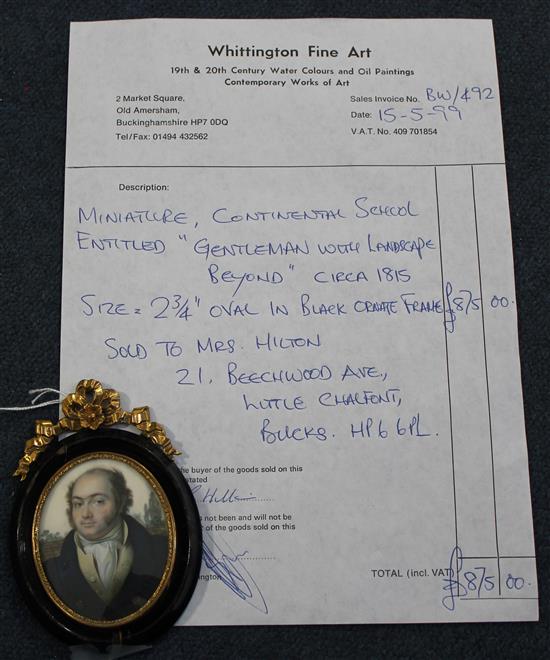 Whittington Fine Art
19th & 20th Century Water Colours and Oil Paintings
Contemporary Works of Art
2 Market Square,
Old Amersham,
Buckinghamshire HP7 0DQ
Tel/Fax: 01494 432562
Sales Invoice No. BW/492
Date: 15-5-99
V.A.T. No. 409 701854
Description:
MINIATURE, CONTINENTAL SCHOOL
ENTITLED "GENTLEMAN WITH LANDSCAPE
BEYOND" CIRCA 1815
SIZE = 2¾" OVAL IN BLACK ORNATE FRAME £875 00.
SOLD TO MRS. HILTON
21, BEECHWOOD AVE.,
LITTLE CHALFONT,
BUCKS. HP6 6PL.
he buyer of the goods sold on this
stated
s not been and will not be
of the goods sold on this
ington
TOTAL (incl. VAT) £875 00.